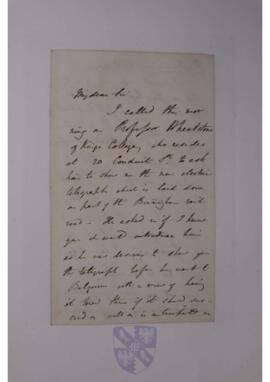 My dear Sir
I called this mor
ning on Professor Wheatstone
of Kings College, who resides
at 20 Conduit St. to ask
him to show me the new electric
telegraph which is laid down
on part of the Birmingham rail
road - He asked me if I knew
you & would introduce him
as he was desirous to show you
the telegraph before he went to
Belgium with a view of having
it tried there if it should suc
ceed